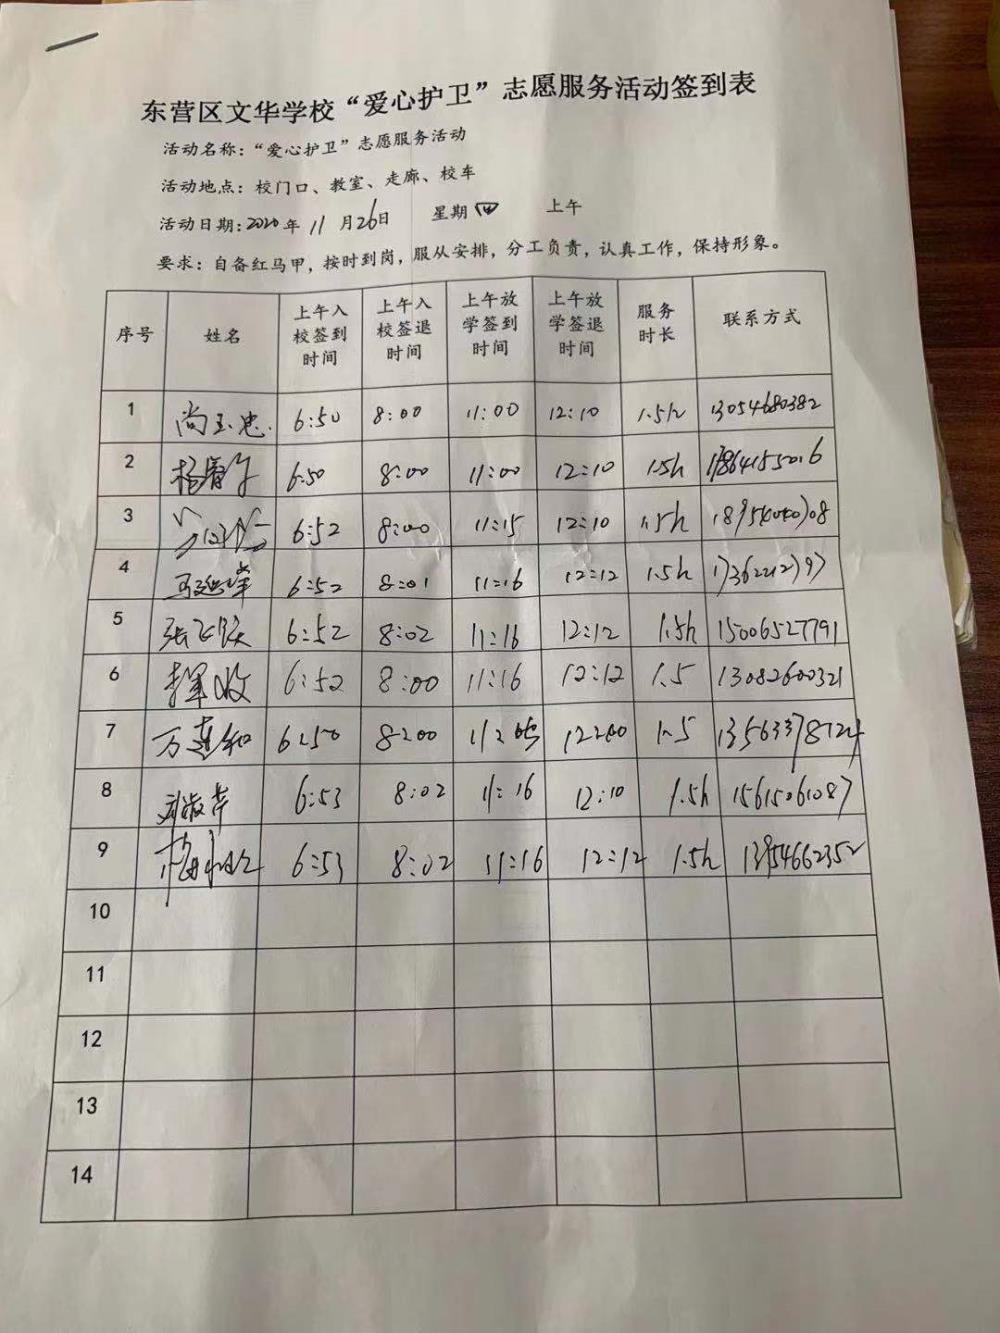 东营区文华学校“爱心护卫”志愿服务活动签到表
活动名称：“爱心护卫”志愿服务活动
活动地点：校门口、教室、走廊、校车
活动日期：2020年11月26日 星期四 上午
要求：自备红马甲，按时到岗，服从安排，分工负责，认真工作，保持形象。
序号 姓名 上午入校签到时间 上午入校签退时间 上午放学签到时间 上午放学签退时间 服务时长 联系方式
1 尚玉忠 6:50 8:00 11:00 12:10 1.5h 13054680382
2 6:50 8:00 11:00 12:10 1.5h
3 6:52 8:00 11:15 12:10 1.5h
4 6:52 8:01 11:16 12:12 1.5h 17362212797
5 6:52 8:02 11:16 12:12 1.5h 15006527791
6 6:52 8:00 11:16 12:12 1.5 13082600321
7 6:50 8:00 1.5
8 6:53 8:02 11:16 12:10 1.5h 15615061087
9 6:53 8:02 11:16 12:12 1.5h 13954662352
10
11
12
13
14